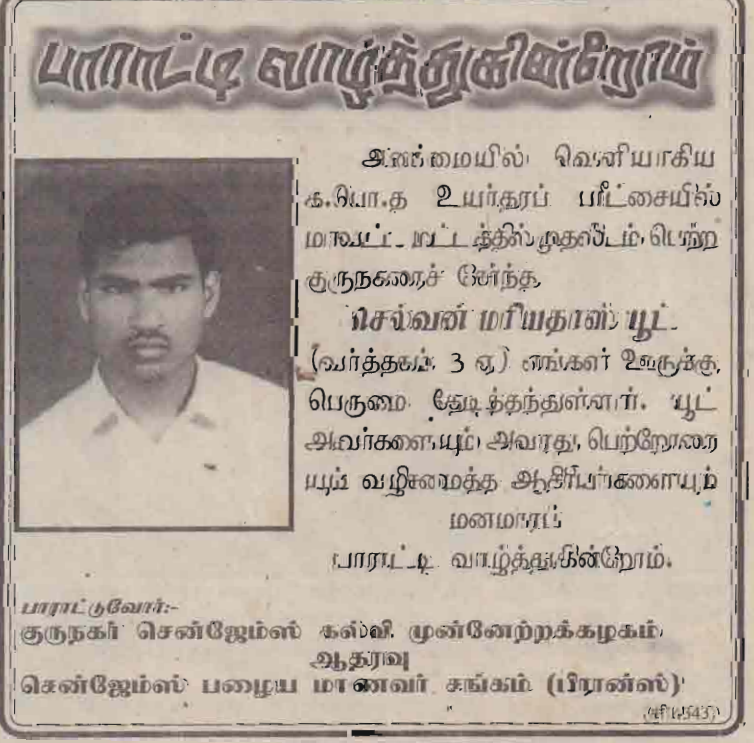 பாராட்டி வாழ்த்துகின்றோம்
அண்மையில் வெளியாகிய
க.பொ.த உயர்தரப் பரீட்சையில்
மாவட்ட மட்டத்தில் முதலிடம் பெற்ற
குருநகரைச் சேர்ந்த
செல்வன் மரியதாஸ் யூட்
(வர்த்தகம் 3 ஏ) எங்கள் ஊருக்கு
பெருமை தேடித்தந்துள்ளார். யூட்
அவர்களையும் அவரது பெற்றோரை
யும் வழிசமைத்த ஆசிரியர்களையும்
மனமாரப்
பாராட்டி வாழ்த்துகின்றோம்.
பாராட்டுவோர்:-
குருநகர் சென்ஜேம்ஸ் கல்வி முன்னேற்றக்கழகம்
ஆதரவு
சென்ஜேம்ஸ் பழைய மாணவர் சங்கம் (பிரான்ஸ்)